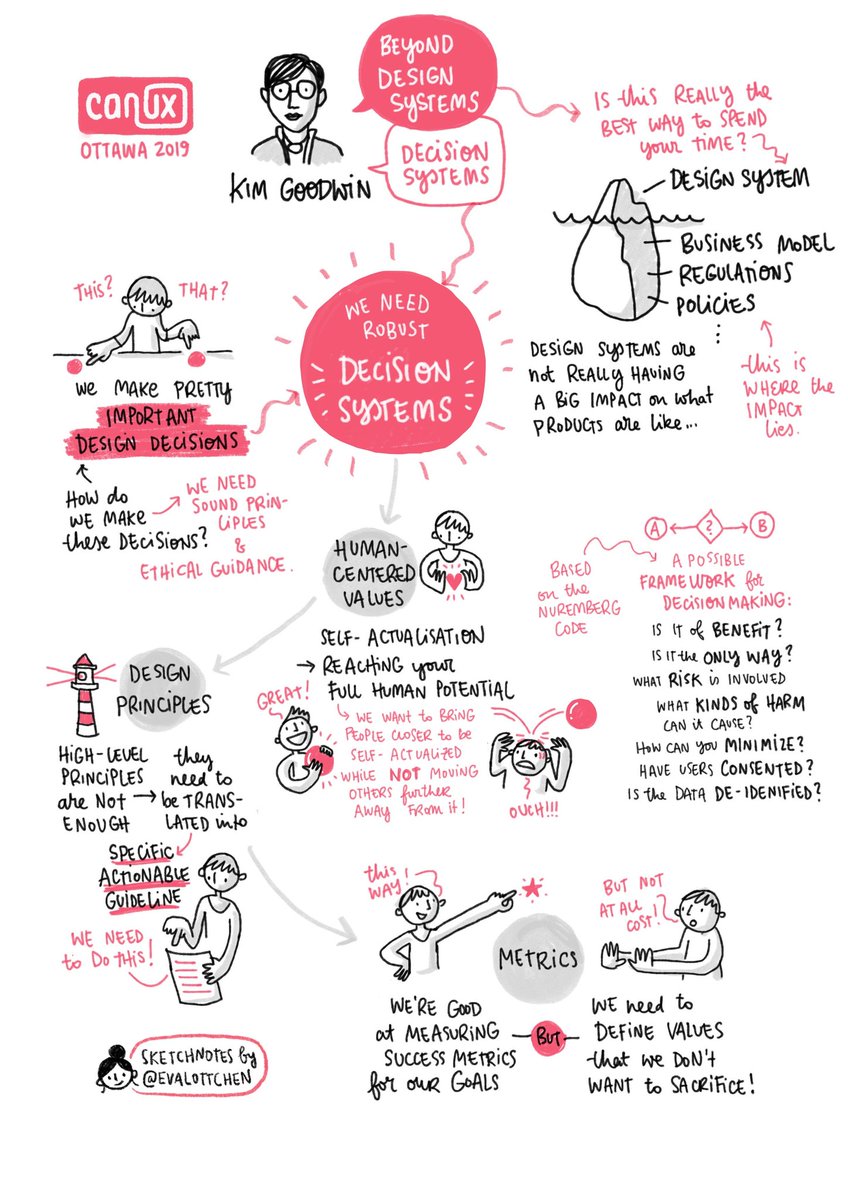 canux
OTTAWA 2019
KIM GOODWIN
BEYOND
DESIGN
SYSTEMS
DECISION
SYSTEMS
IS this REALLY the
BEST WAY to SPEND
your TIME?
DESIGN SYSTEM
BUSINESS MODEL
REGULATIONS
POLICIES
...
DESIGN SYSTEMS are
not REALLY HAVING
A BIG IMPACT on what
PRODUCTS are LIKE...
this is
WHERE the
IMPACT
lies.
THIS?
THAT?
WE MAKE PRETTY
IMPORTANT
DESIGN DECISIONS
HOW do
WE MAKE
these DECISIONS?
WE NEED
SOUND PRIN-
CIPLES
&
ETHICAL GUIDANCE.
WE NEED
ROBUST
DECISION
SYSTEMS
HUMAN-
CENTERED
VALUES
SELF-ACTUALISATION
→ REACHING your
FULL HUMAN POTENTIAL
WE WANT to BRING
PEOPLE CLOSER to be
SELF-ACTUALIZED
WHILE NOT MOVING
OTHERS further
AWAY FROM it!
GREAT!
OUCH!!!
A ? B
BASED
on the
NUREMBERG
CODE
A POSSIBLE
FRAMEWORK for
DECISIONMAKING:
IS IT of BENEFIT?
IS it the ONLY WAY?
WHAT RISK is INVOLVED
WHAT KINDS of HARM
CAN it CAUSE?
HOW CAN you MINIMIZE?
HAVE USERS CONSENTED?
IS the DATA DE-IDENIFIED?
DESIGN
PRINCIPLES
HIGH-LEVEL
PRINCIPLES
are NOT
ENOUGH
→ they
need to
be TRANS-
LATED into
SPECIFIC
ACTIONABLE
GUIDELINE
WE NEED
to DO THIS!
METRICS
this
WAY!
BUT NOT
AT ALL
COST!
WE'RE GOOD
at MEASURING
SUCCESS METRICS
for our GOALS
BUT
WE need to
DEFINE VALUES
that we DON'T
WANT to SACRIFICE!
SKETCHNOTES by
@EVALOTTCHEN